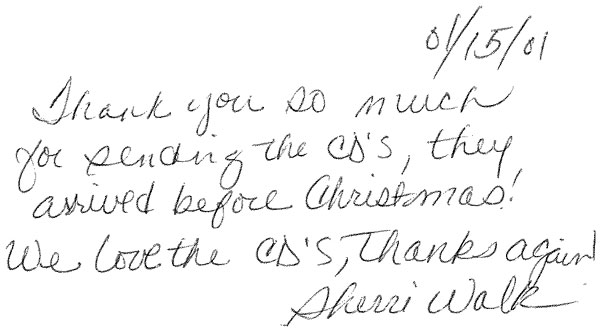 01/15/01
Thank you so much
for sending the CD's, they
arrived before Christmas!
We love the CD'S, Thanks again!
Sherri Walk